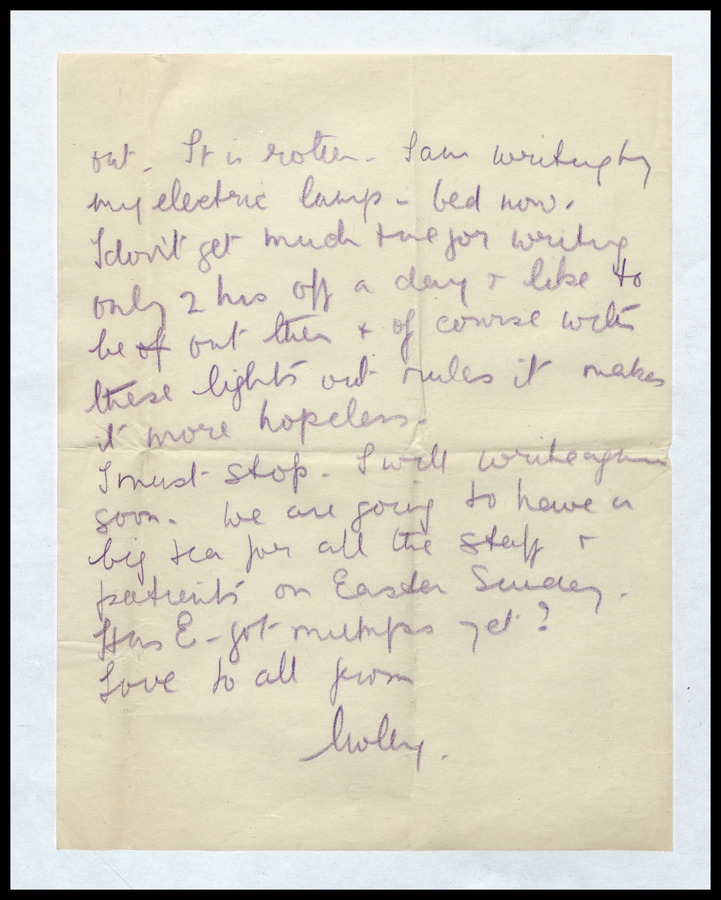 out. It is rotten. I am writing by
my electric lamp - bed now.
I don't get much time for writing
only 2 hrs off a day & like to
be of out then & of course with
these lights out rules it makes
it more hopeless.
I must stop. I will write again
soon. We are going to have a
big tea for all the staff &
patients on Easter Sunday.
Has E - got mumps yet?
Love to all from